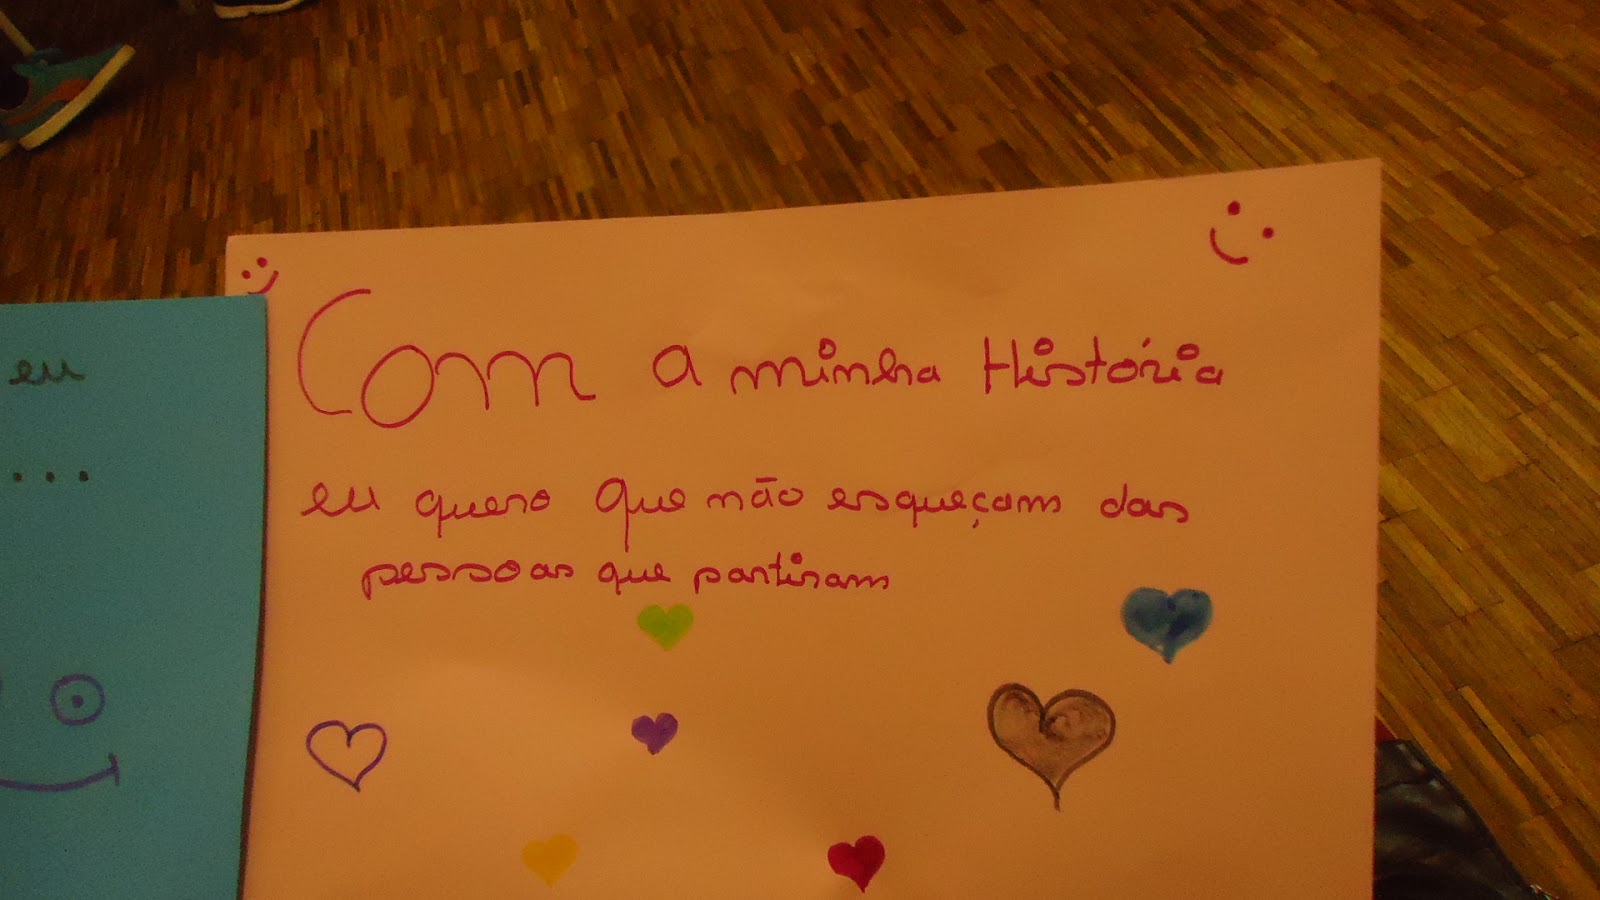 Com a minha História
eu quero que não esqueçam das
pessoas que partiram
eu
...